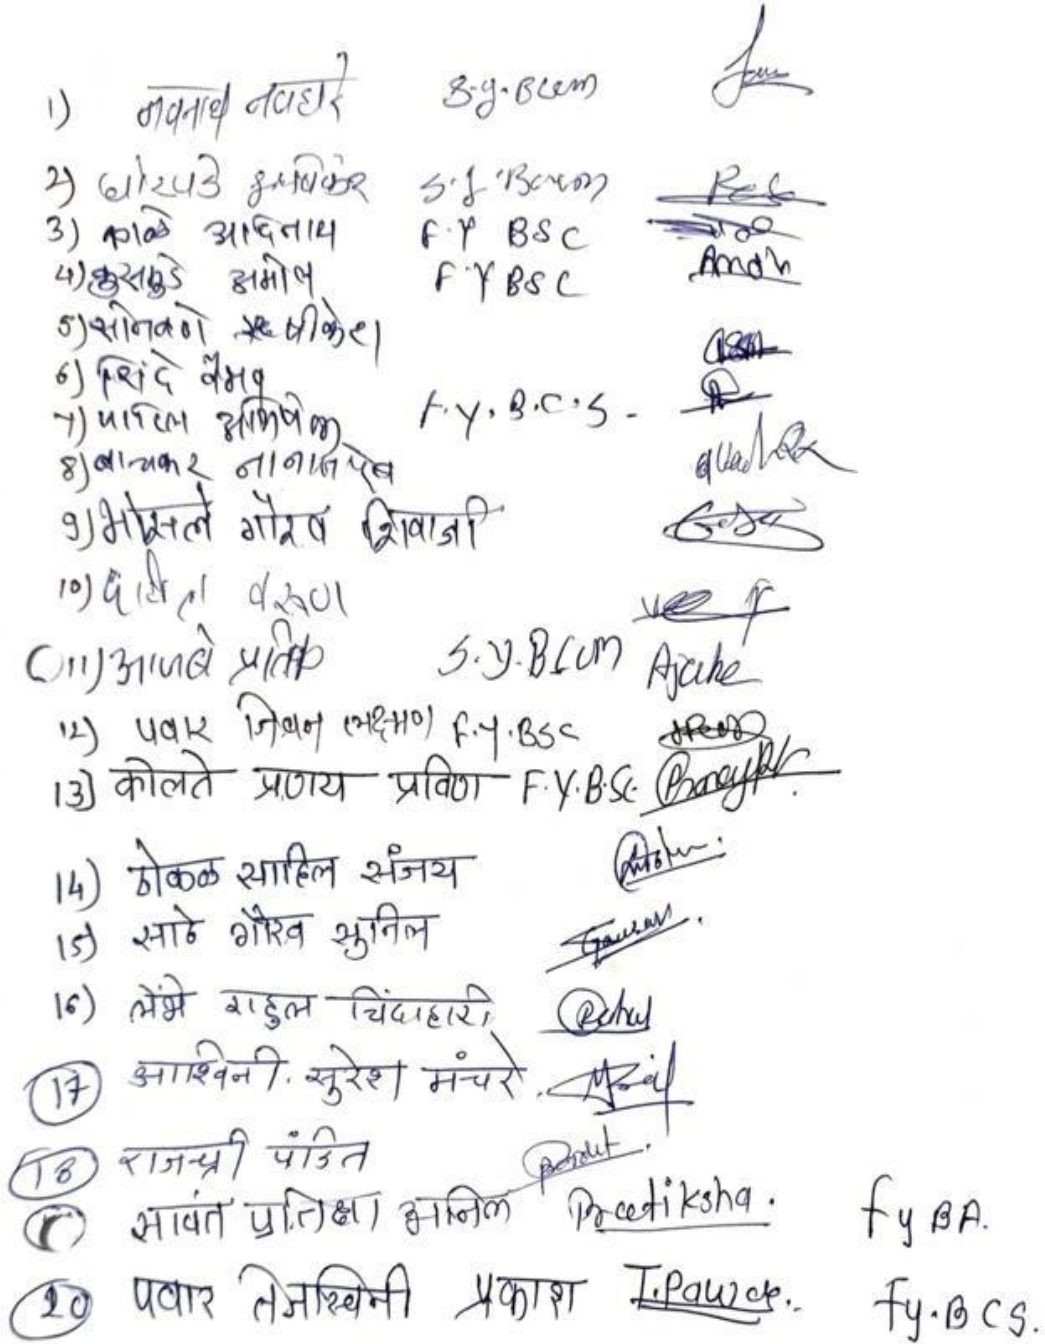 1) नवनाथ नवहारे S.y.Bcom
2) घोरपडे S.y.Bcom
3) काळे आदिनाथ F.Y BSC
4) कुसमुडे अमोल F.Y BSC Amol
5) सोनवणे ऋषीकेश
6) शिंदे वैभव
7) पाटिल अभिषेक F.Y.B.C.S-
8)
9) भोसले गौरव शिवाजी
10) वरुण
11) आजबे प्रतिक S.y.Bcom Ajabe
12) पवार जिवन लक्ष्मण F.Y.BSC
13) कोलते प्रणय प्रविण F.Y.B.Sc.
14) ठोकळ साहिल संजय
15) साठे गौरव सुनिल Gaurav.
16) लेंभे राहुल Rahul
17 आश्विनी. सुरेश मंचरे.
18 राजश्री पंडित Pandit.
सावंत प्रतिक्षा अनिल Pratiksha. fy BA.
20 पवार तेजस्विनी प्रकाश T.Pawar. fy.BCS.